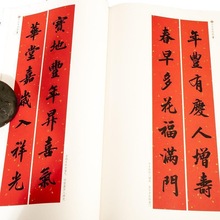 年豐有慶人增壽
春早多花福滿門
寶地豐年昇喜氣
華堂嘉歲入祥光